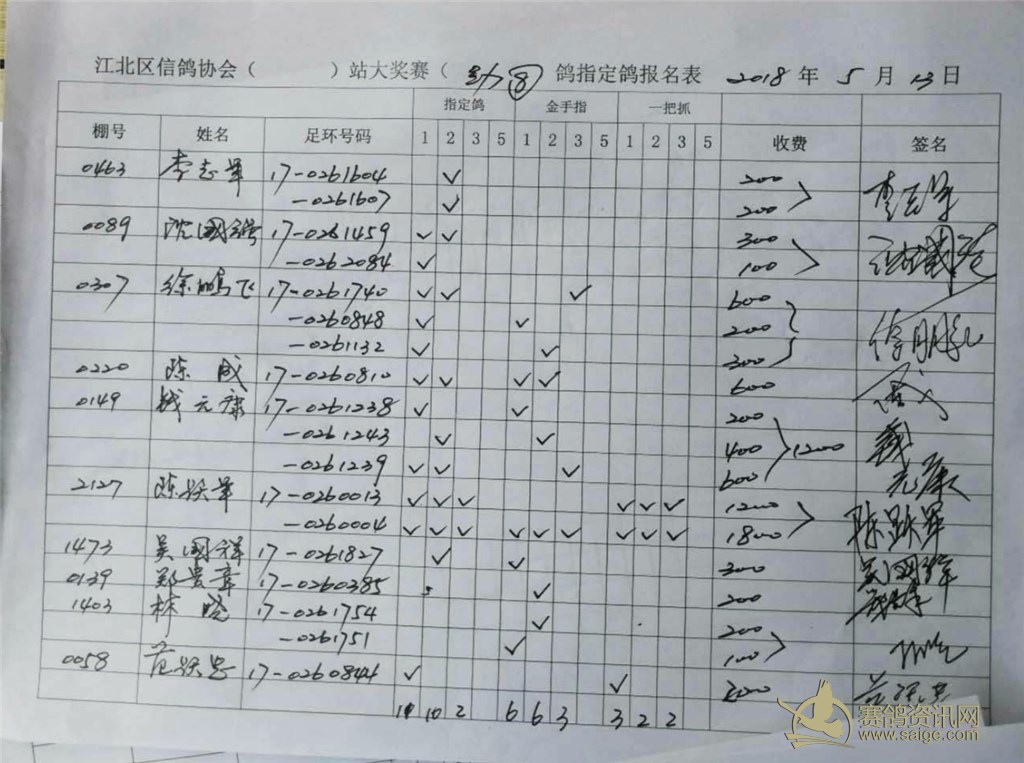 江北区信鸽协会（ ）站大奖赛（ ⑧ 鸽指定鸽报名表 2018 年 5 月 13 日
指定鸽 金手指 一把抓
棚号 姓名 足环号码 1 2 3 5 1 2 3 5 1 2 3 5 收费 签名
0463 李志军 17-0261604 ✓ 200
-0261607 ✓ 200
0089 沈国强 17-0261459 ✓ ✓ 300
-0262084 ✓ 100
0307 徐鹏飞 17-0261740 ✓ ✓ ✓ 600
-0260848 ✓ ✓ 200
-0261132 ✓ ✓ 300
0220 陈成 17-0260810 ✓ ✓ ✓ ✓ 600
0149 钱元康 17-0261238 ✓ ✓ 200
-0261243 ✓ ✓ 400 1200
-0261239 ✓ ✓ ✓ 600
2127 陈跃军 17-0260013 ✓ ✓ ✓ ✓ ✓ ✓ 1200 陈跃军
-0260004 ✓ ✓ ✓ ✓ ✓ ✓ ✓ ✓ ✓ 1800
1473 吴国祥 17-0261827 ✓ ✓ 300
0139 郑景章 17-0260385 ✓ 200
1403 林晓 17-0261754 ✓ 200
-0261751 ✓ 100
0058 范跃忠 17-0260844 ✓ ✓ 200
10 2 6 6 3 3 2 2
赛鸽资讯网
www.saige.com